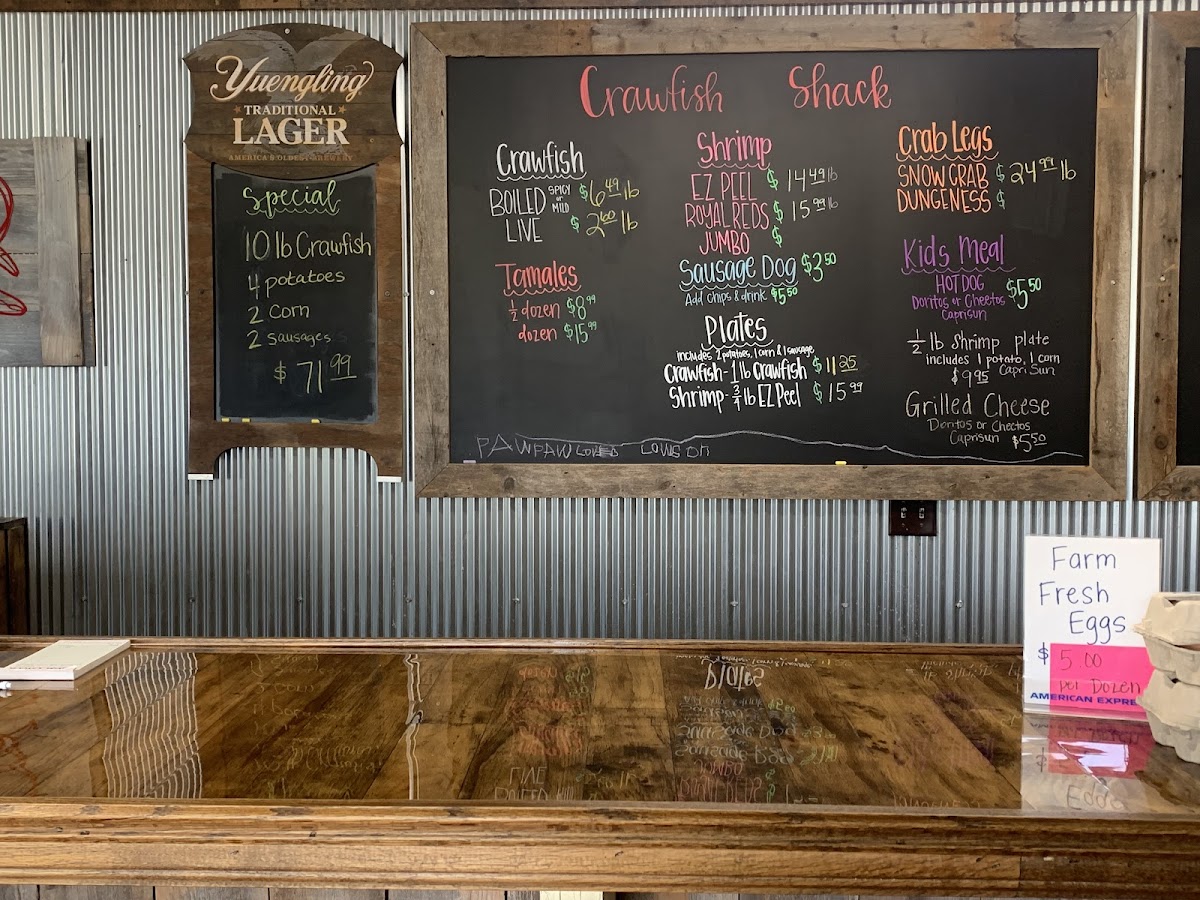 Yuengling
TRADITIONAL
LAGER
AMERICA'S OLDEST BREWERY
Special
10 lb Crawfish
4 potatoes
2 Corn
2 sausages
$ 71 99
Crawfish Shack
Crawfish
BOILED SPICY or MILD $6 49 lb
LIVE $2 60 lb
Tamales
1/2 dozen $8 99
dozen $15 99
Shrimp
EZ PEEL $14 49 lb
ROYAL REDS $15 99 lb
JUMBO $
Sausage Dog $3 50
Add chips & drink $5 50
Plates
includes 2 potatoes, 1 corn & 1 sausage
Crawfish - 1 lb Crawfish $11 25
Shrimp - 3/4 lb EZ Peel $15 99
Crab Legs
SNOW CRAB $24 99 lb
DUNGENESS $
Kids Meal
HOT DOG $5 50
Doritos or Cheetos
Caprisun
1/2 lb shrimp plate
includes 1 potato, 1 corn
$9 95 Capri Sun
Grilled Cheese
Doritos or Cheetos
Caprisun $5 50
PAWPAW
Farm
Fresh
Eggs
$ 5.00
per Dozen
AMERICAN EXPRE